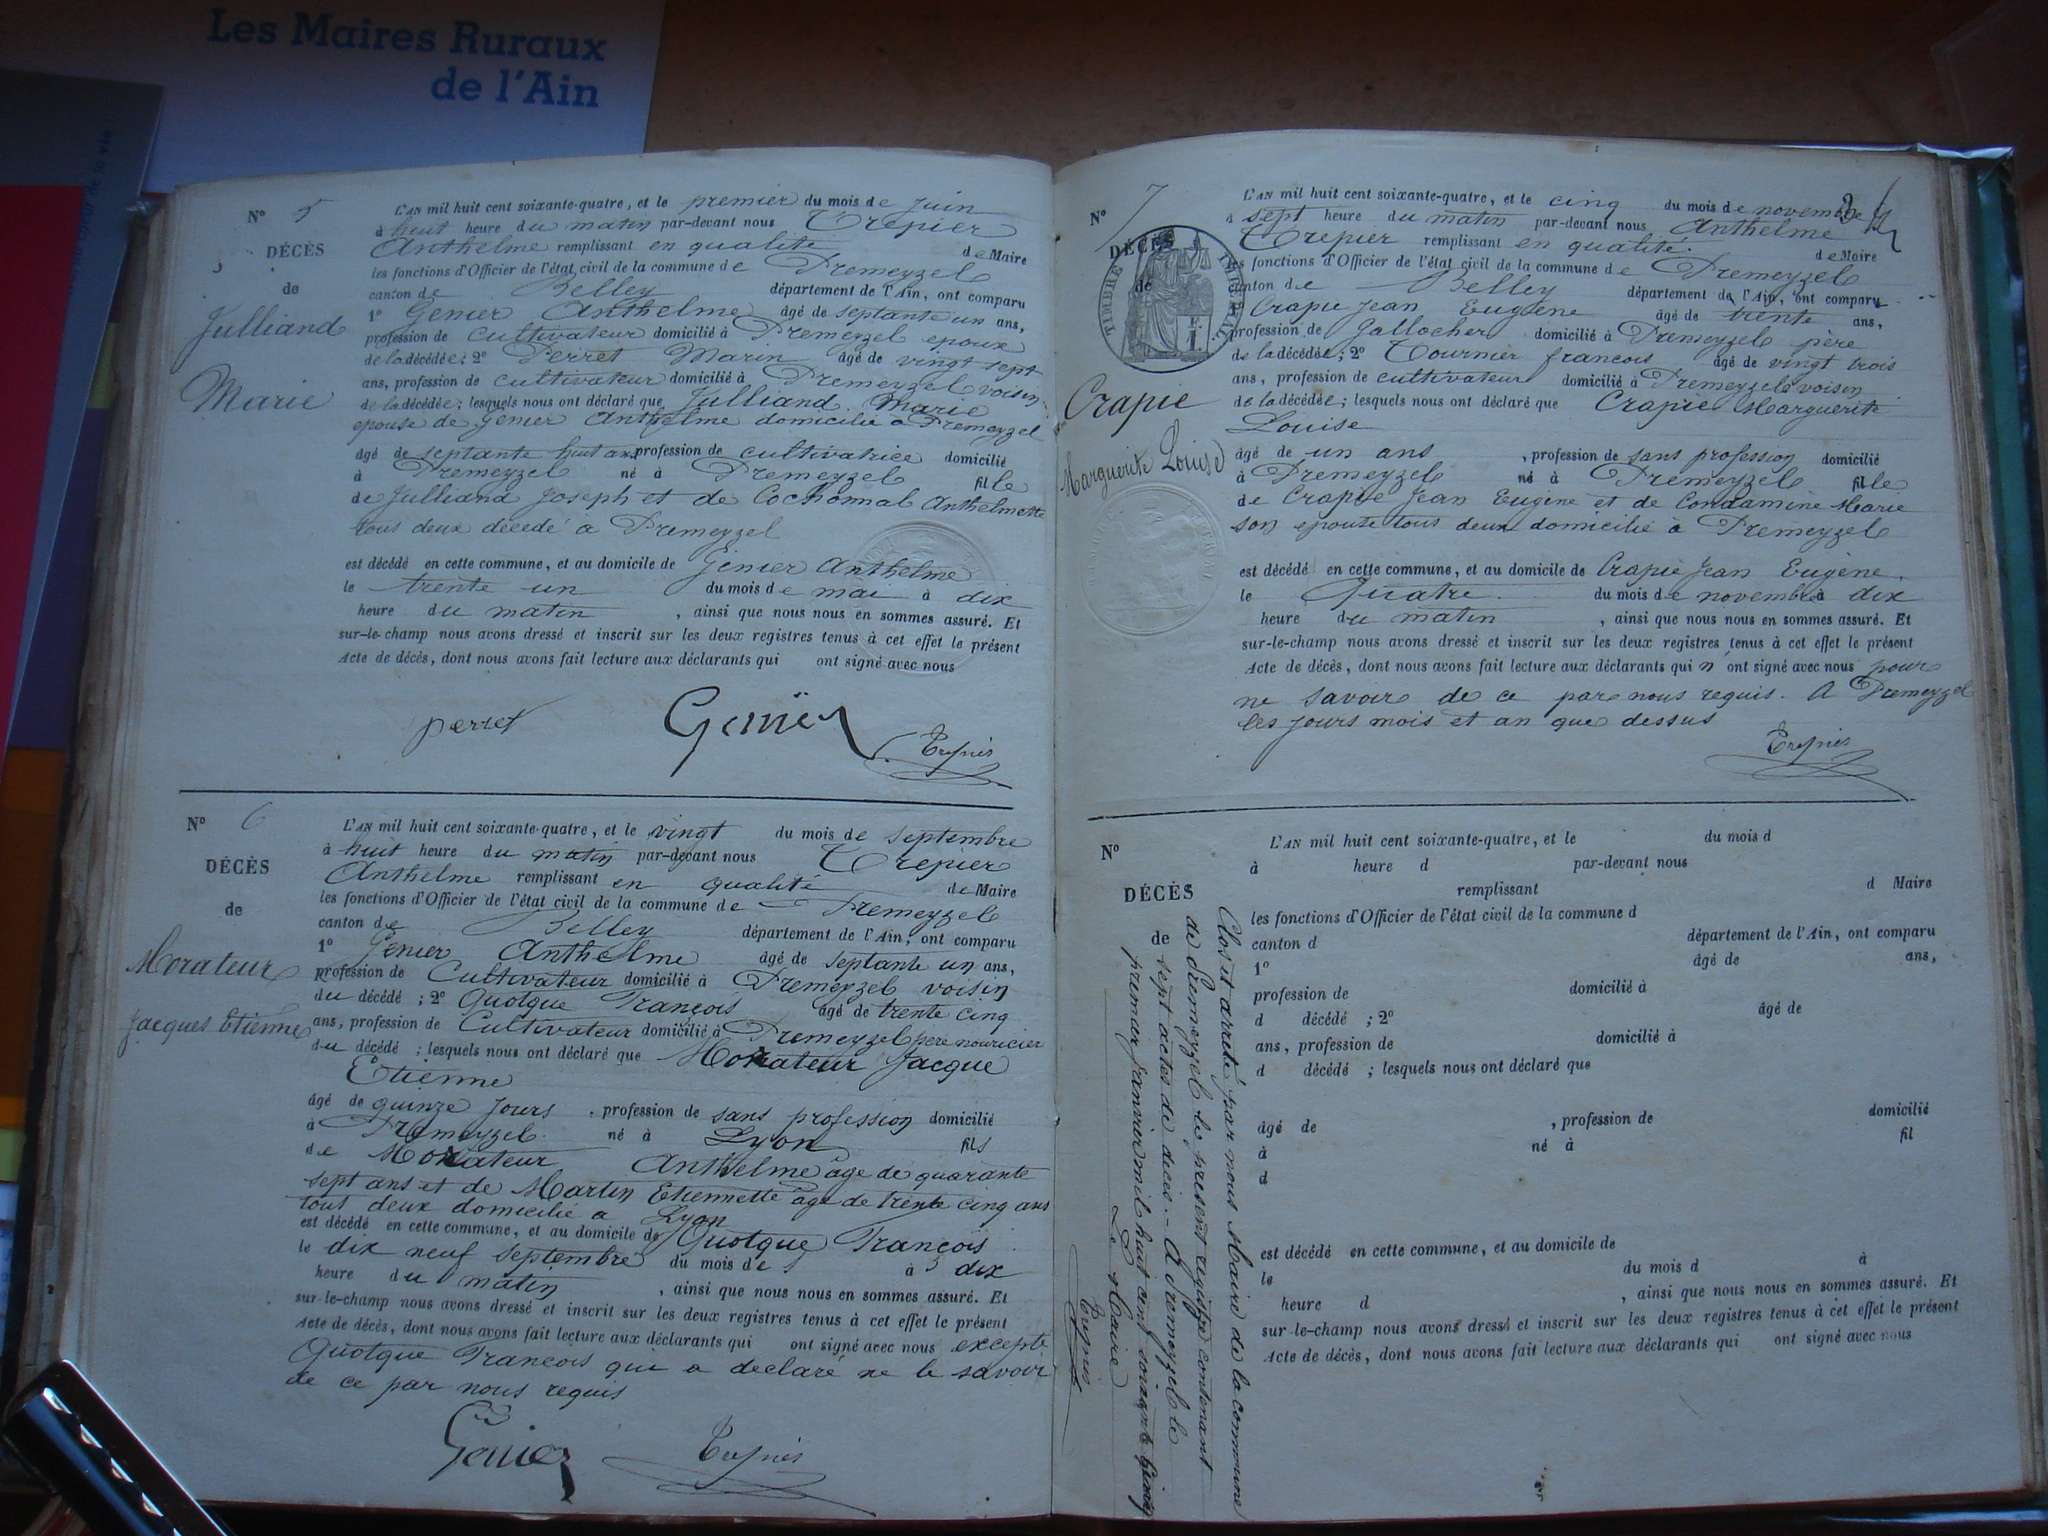 Les Maires Ruraux
de l'Ain
N° 5
DÉCÈS
de
Julliand
Marie
L'AN mil huit cent soixante-quatre, et le premier du mois de juin
à huit heure du matin par-devant nous Trepier
Anthelme remplissant en qualité de Maire
les fonctions d'Officier de l'état civil de la commune de Premeyzel
canton de Belley département de l'Ain, ont comparu
1° Genier Anthelme âgé de septante un ans,
profession de cultivateur domicilié à Premeyzel epoux
de la décédée; 2° Perret Marin âgé de vingt sept
ans, profession de cultivateur domicilié à Premeyzel voisin
de la décédée; lesquels nous ont déclaré que Julliand Marie
epouse de Genier Anthelme domicilié a Premeyzel
âgé de septante huit ans profession de cultivatrice domicilié
à Premeyzel né à Premeyzel fille
de Julliand Joseph et de Cochonnal Anthelmette
tous deux décédé a Premeyzel
est décédé en cette commune, et au domicile de Genier Anthelme
le trente un du mois de mai à dix
heure du matin , ainsi que nous nous en sommes assuré. Et
sur-le-champ nous avons dressé et inscrit sur les deux registres tenus à cet effet le présent
Acte de décès, dont nous avons fait lecture aux déclarants qui ont signé avec nous
perret Genier Trepier
N° 6
DÉCÈS
de
Morateur
Jacques Etienne
L'AN mil huit cent soixante-quatre, et le vingt du mois de septembre
à huit heure du matin par-devant nous Trepier
Anthelme remplissant en qualité de Maire
les fonctions d'Officier de l'état civil de la commune de Premeyzel
canton de Belley département de l'Ain, ont comparu
1° Genier Anthelme âgé de septante un ans,
profession de Cultivateur domicilié à Premeyzel voisin
du décédé ; 2° Quotque François âgé de trente cinq
ans, profession de Cultivateur domicilié à Premeyzel pere nouricier
du décédé ; lesquels nous ont déclaré que Morateur Jacque
Etienne
âgé de quinze jours , profession de sans profession domicilié
à Premeyzel né à Lyon fils
de Morateur Anthelme âge de quarante
sept ans et de Martin Etiennette âge de trente cinq ans
tout deux domicilié a Lyon
est décédé en cette commune, et au domicile de Quotque François
le dix neuf septembre du mois de à dix
heure du matin , ainsi que nous nous en sommes assuré. Et
sur-le-champ nous avons dressé et inscrit sur les deux registres tenus à cet effet le présent
Acte de décès, dont nous avons fait lecture aux déclarants qui ont signé avec nous excepte
Quotque François qui a declaré ne le savoir
de ce par nous requis
Genier Trepier
N° 7
DÉCÈS
de
TIMBRE IMPÉRIAL
Crapie
Marguerite Louise
L'AN mil huit cent soixante-quatre, et le cinq du mois de novembre
à sept heure du matin par-devant nous Anthelme
Trepier remplissant en qualité de Maire
les fonctions d'Officier de l'état civil de la commune de Premeyzel
canton de Belley département de l'Ain, ont comparu
Crapie Jean Eugene âgé de trente ans,
profession de Gallocher domicilié à Premeyzel père
de la décédée; 2° Tournier francois âgé de vingt trois
ans, profession de cultivateur domicilié à Premeyzel voisin
de la décédée; lesquels nous ont déclaré que Crapie Marguerite
Louise
âgé de un ans , profession de sans profession domicilié
à Premeyzel né à Premeyzel fille
de Crapie Jean Eugène et de Condamine Marie
son epoute tous deux domicilié a Premeyzel
est décédé en cette commune, et au domicile de Crapie Jean Eugène.
le Quatre du mois de novembre à dix
heure du matin , ainsi que nous nous en sommes assuré. Et
sur-le-champ nous avons dressé et inscrit sur les deux registres tenus à cet effet le présent
Acte de décès, dont nous avons fait lecture aux déclarants qui n'ont signé avec nous pour
ne savoir de ce par nous requis. A Premeyzel
les jours mois et an que dessus
Trepier
N°
DÉCÈS
de
L'AN mil huit cent soixante-quatre, et le du mois d
à heure d par-devant nous
remplissant d Maire
les fonctions d'Officier de l'état civil de la commune d
canton d département de l'Ain, ont comparu
1° âgé de ans,
profession de domicilié à
d décédé ; 2° âgé de
ans, profession de domicilié à
d décédé ; lesquels nous ont déclaré que
âgé de , profession de domicilié
à né à fil
d
est décédé en cette commune, et au domicile de
le du mois d à
heure d , ainsi que nous nous en sommes assuré. Et
sur-le-champ nous avons dressé et inscrit sur les deux registres tenus à cet effet le présent
Acte de décès, dont nous avons fait lecture aux déclarants qui ont signé avec nous
Clos et arreté par nous Maire de la commune
de Premeyzel le present registre contenant
sept actes de deces. - A Premeyzel le
premier Janvier mil huit cent soixante cinq
Le Maire
Trepier